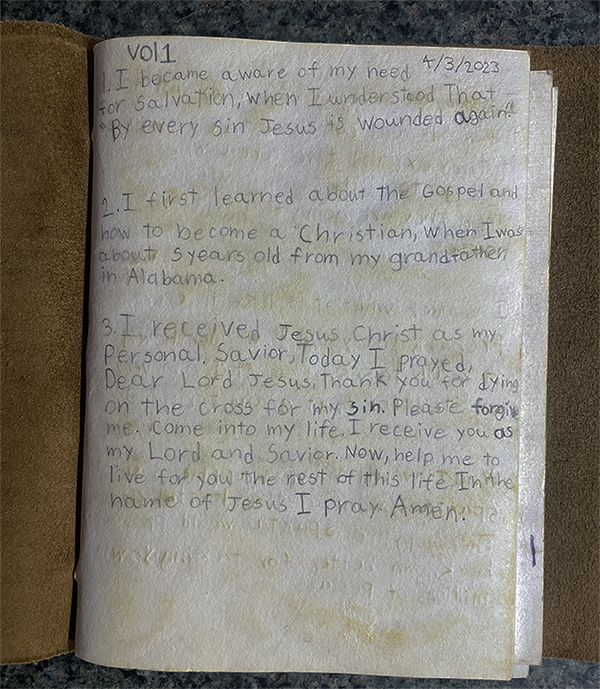 vol1
4/3/2023
1. I became aware of my need
for Salvation, when I understood That
"By every sin Jesus is wounded again."
2. I first learned about the Gospel and
how to become a Christian, when I was
about 5 years old from my grandfather
in Alabama.
3. I received Jesus Christ as my
Personal, Savior, Today I prayed,
Dear Lord Jesus, Thank you for dying
on the cross for my sin. Please forgive
me. Come into my life. I receive you as
my Lord and Savior. Now, help me to
live for you the rest of this life. In the
name of Jesus I pray. Amen.